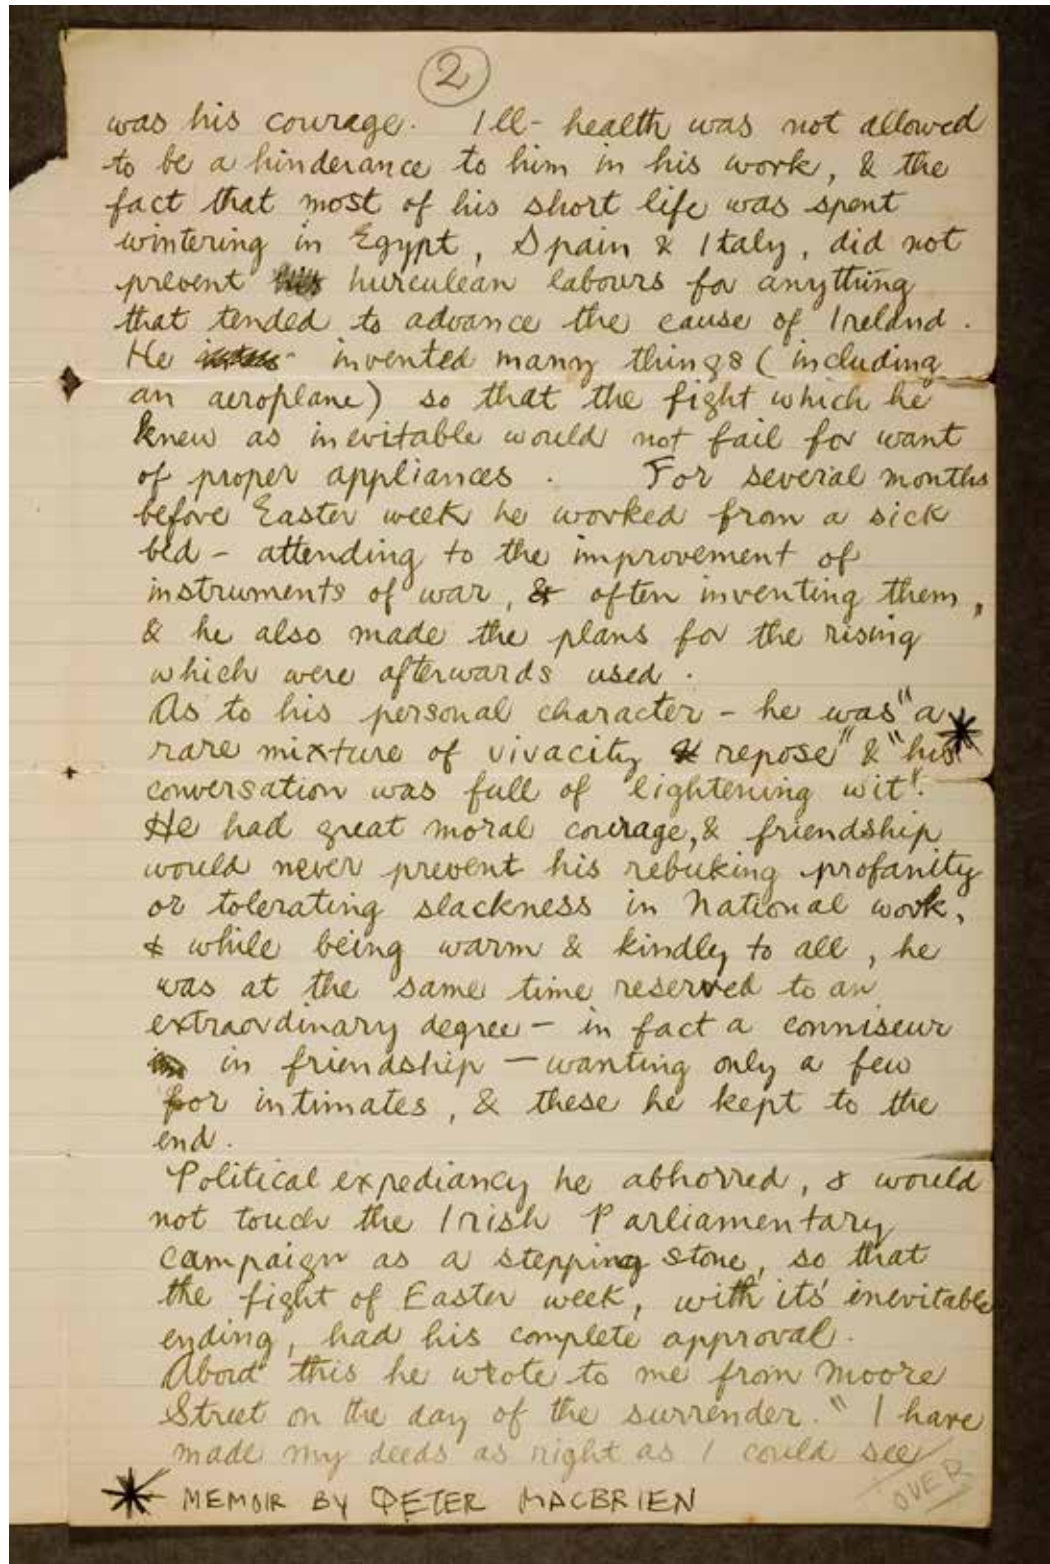 2
was his courage. Ill-health was not allowed
to be a hinderance to him in his work, & the
fact that most of his short life was spent
wintering in Egypt, Spain & Italy, did not
prevent his hurculean labours for anything
that tended to advance the cause of Ireland.
He invented many things (including
an aeroplane) so that the fight which he
knew as inevitable would not fail for want
of proper appliances. For several months
before Easter week he worked from a sick
bed - attending to the improvement of
instruments of war, & often inventing them,
& he also made the plans for the rising
which were afterwards used.
As to his personal character - he was "a
rare mixture of vivacity & repose" & "his
conversation was full of lightening wit".
He had great moral courage, & friendship
would never prevent his rebuking profanity
or tolerating slackness in National work,
& while being warm & kindly to all, he
was at the same time reserved to an
extraordinary degree - in fact a conniseur
in friendship - wanting only a few
for intimates, & these he kept to the
end.
Political expediancy he abhorred, & would
not touch the Irish Parliamentary
campaign as a stepping stone, so that
the fight of Easter week, with it's inevitable
ending, had his complete approval.
About this he wrote to me from Moore
Street on the day of the surrender. "I have
made my deeds as right as I could see
OVER
* MEMOIR BY PETER MACBRIEN